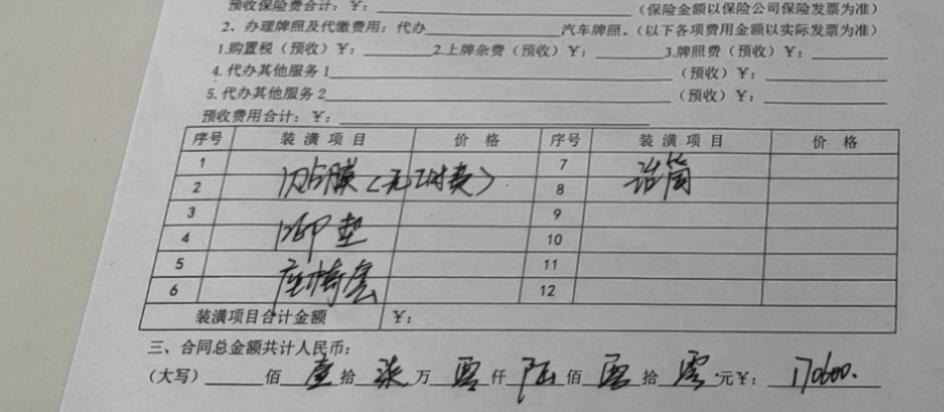 预收保险费合计：￥：（保险金额以保险公司保险发票为准）
2、办理牌照及代缴费用：代办______汽车牌照。（以下各项费用金额以实际发票为准）
1.购置税（预收）￥：______2.上牌杂费（预收）￥：______3.牌照费（预收）￥：______
4.代办其他服务1______（预收）￥：______
5.代办其他服务2______（预收）￥：______
预收费用合计：￥：______
序号 装潢项目 价格 序号 装潢项目 价格
1 7
2 贴膜（无工时费） 8 话筒
3 9
4 脚垫 10
5 11
6 座椅套 12
装潢项目合计金额 ￥：
三、合同总金额共计人民币：
（大写）______佰 壹 拾 柒 万 零 仟 陆 佰 零 拾 零 元￥：170600.